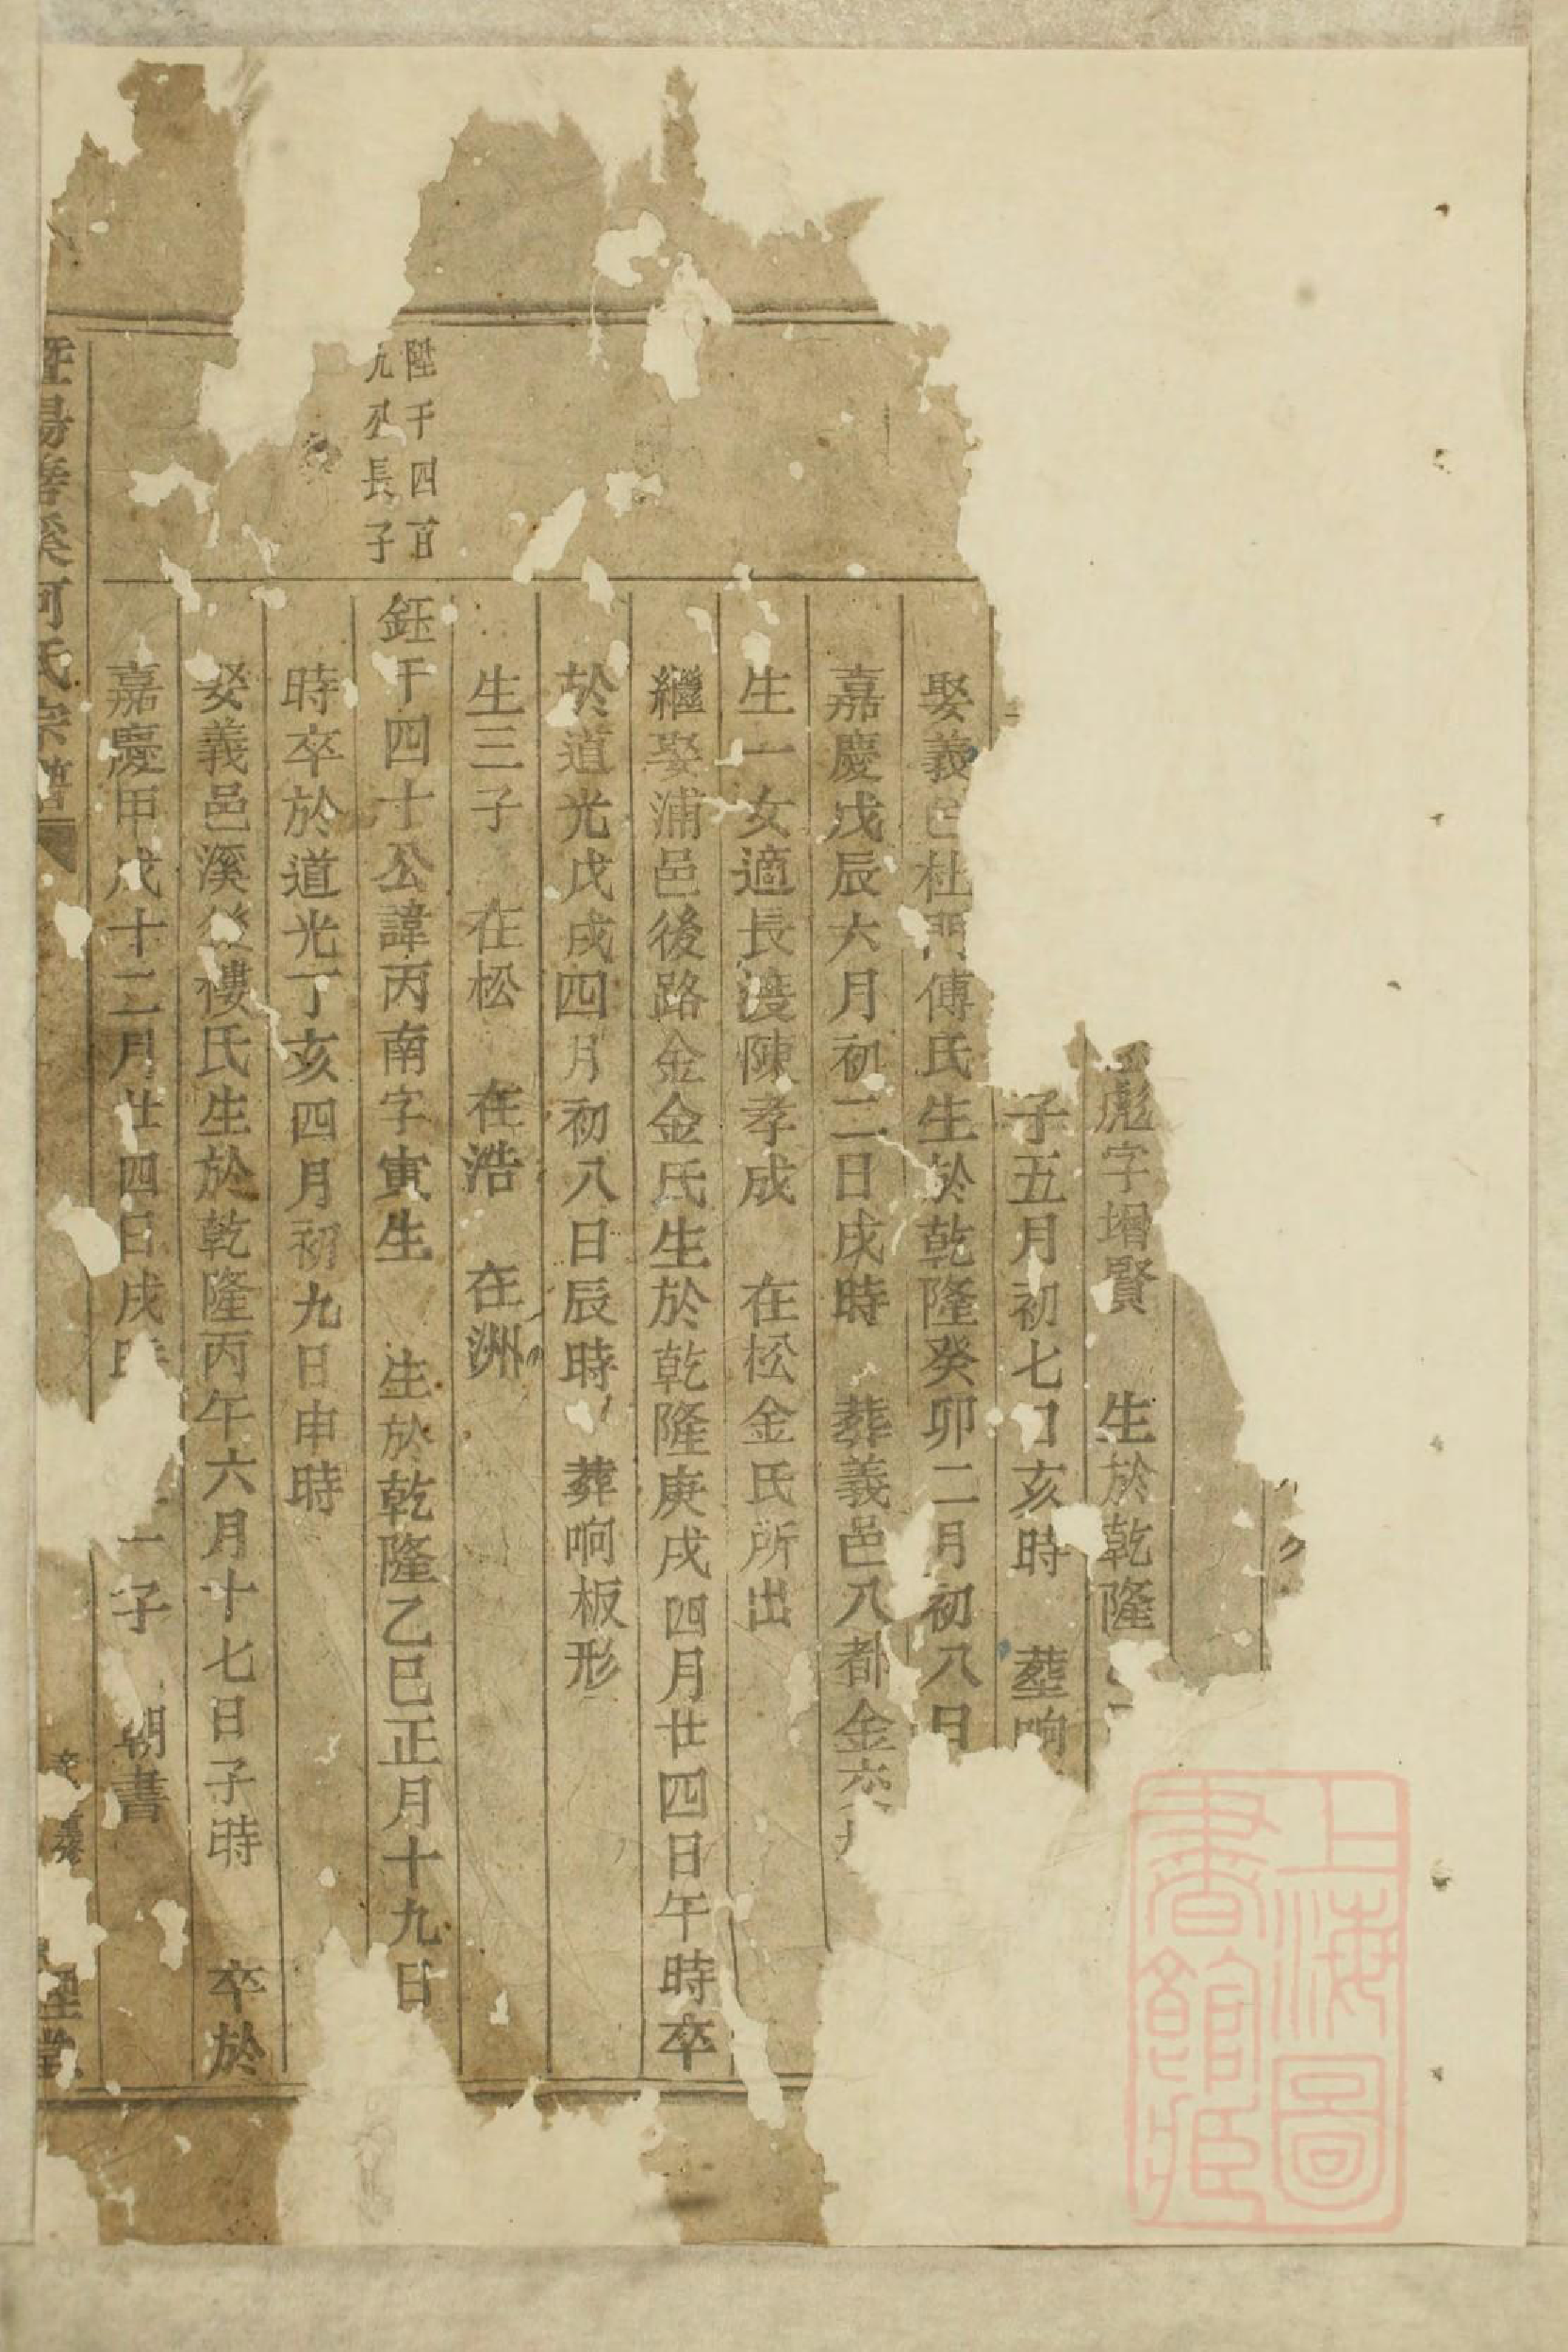 彪字增賢　生於乾隆
子五月初七日亥時　塟响
娶義邑杜門傅氏生於乾隆癸卯二月初八日
嘉慶戊辰六月初二日戌時　葬義邑八都金
生一女適長渡陳孝成　在松金氏所出
繼娶浦邑後路金金氏生於乾隆庚戌四月廿四日午時卒
於道光戊戌四月初八日辰時　葬响板形
生三子　在松　在浩　在洲
陞千四百
九公長子
鈺千四十公諱丙南字寅生　生於乾隆乙巳正月十九日
時卒於道光丁亥四月初九日申時
娶義邑溪後樓氏生於乾隆丙午六月十七日子時　卒於
嘉慶甲戌十二月廿四日戌時
一子　朝書
暨陽善溪何氏宗譜
上海圖書館藏